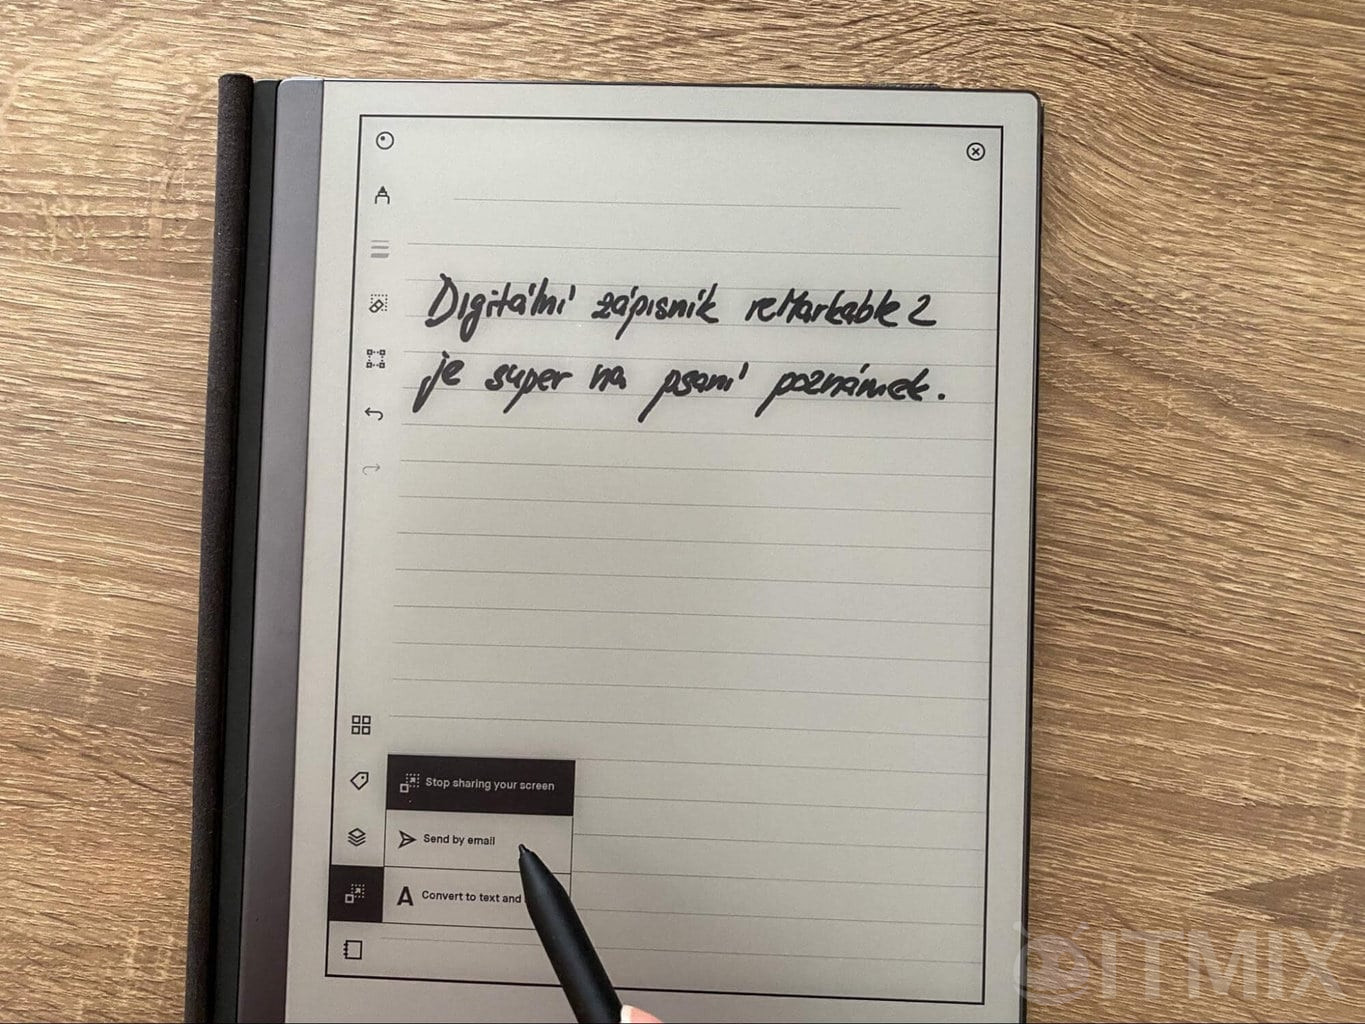 Digitální zápisník reMarkable 2
je super na psaní poznámek.
Stop sharing your screen
Send by email
Convert to text and
ITMIX